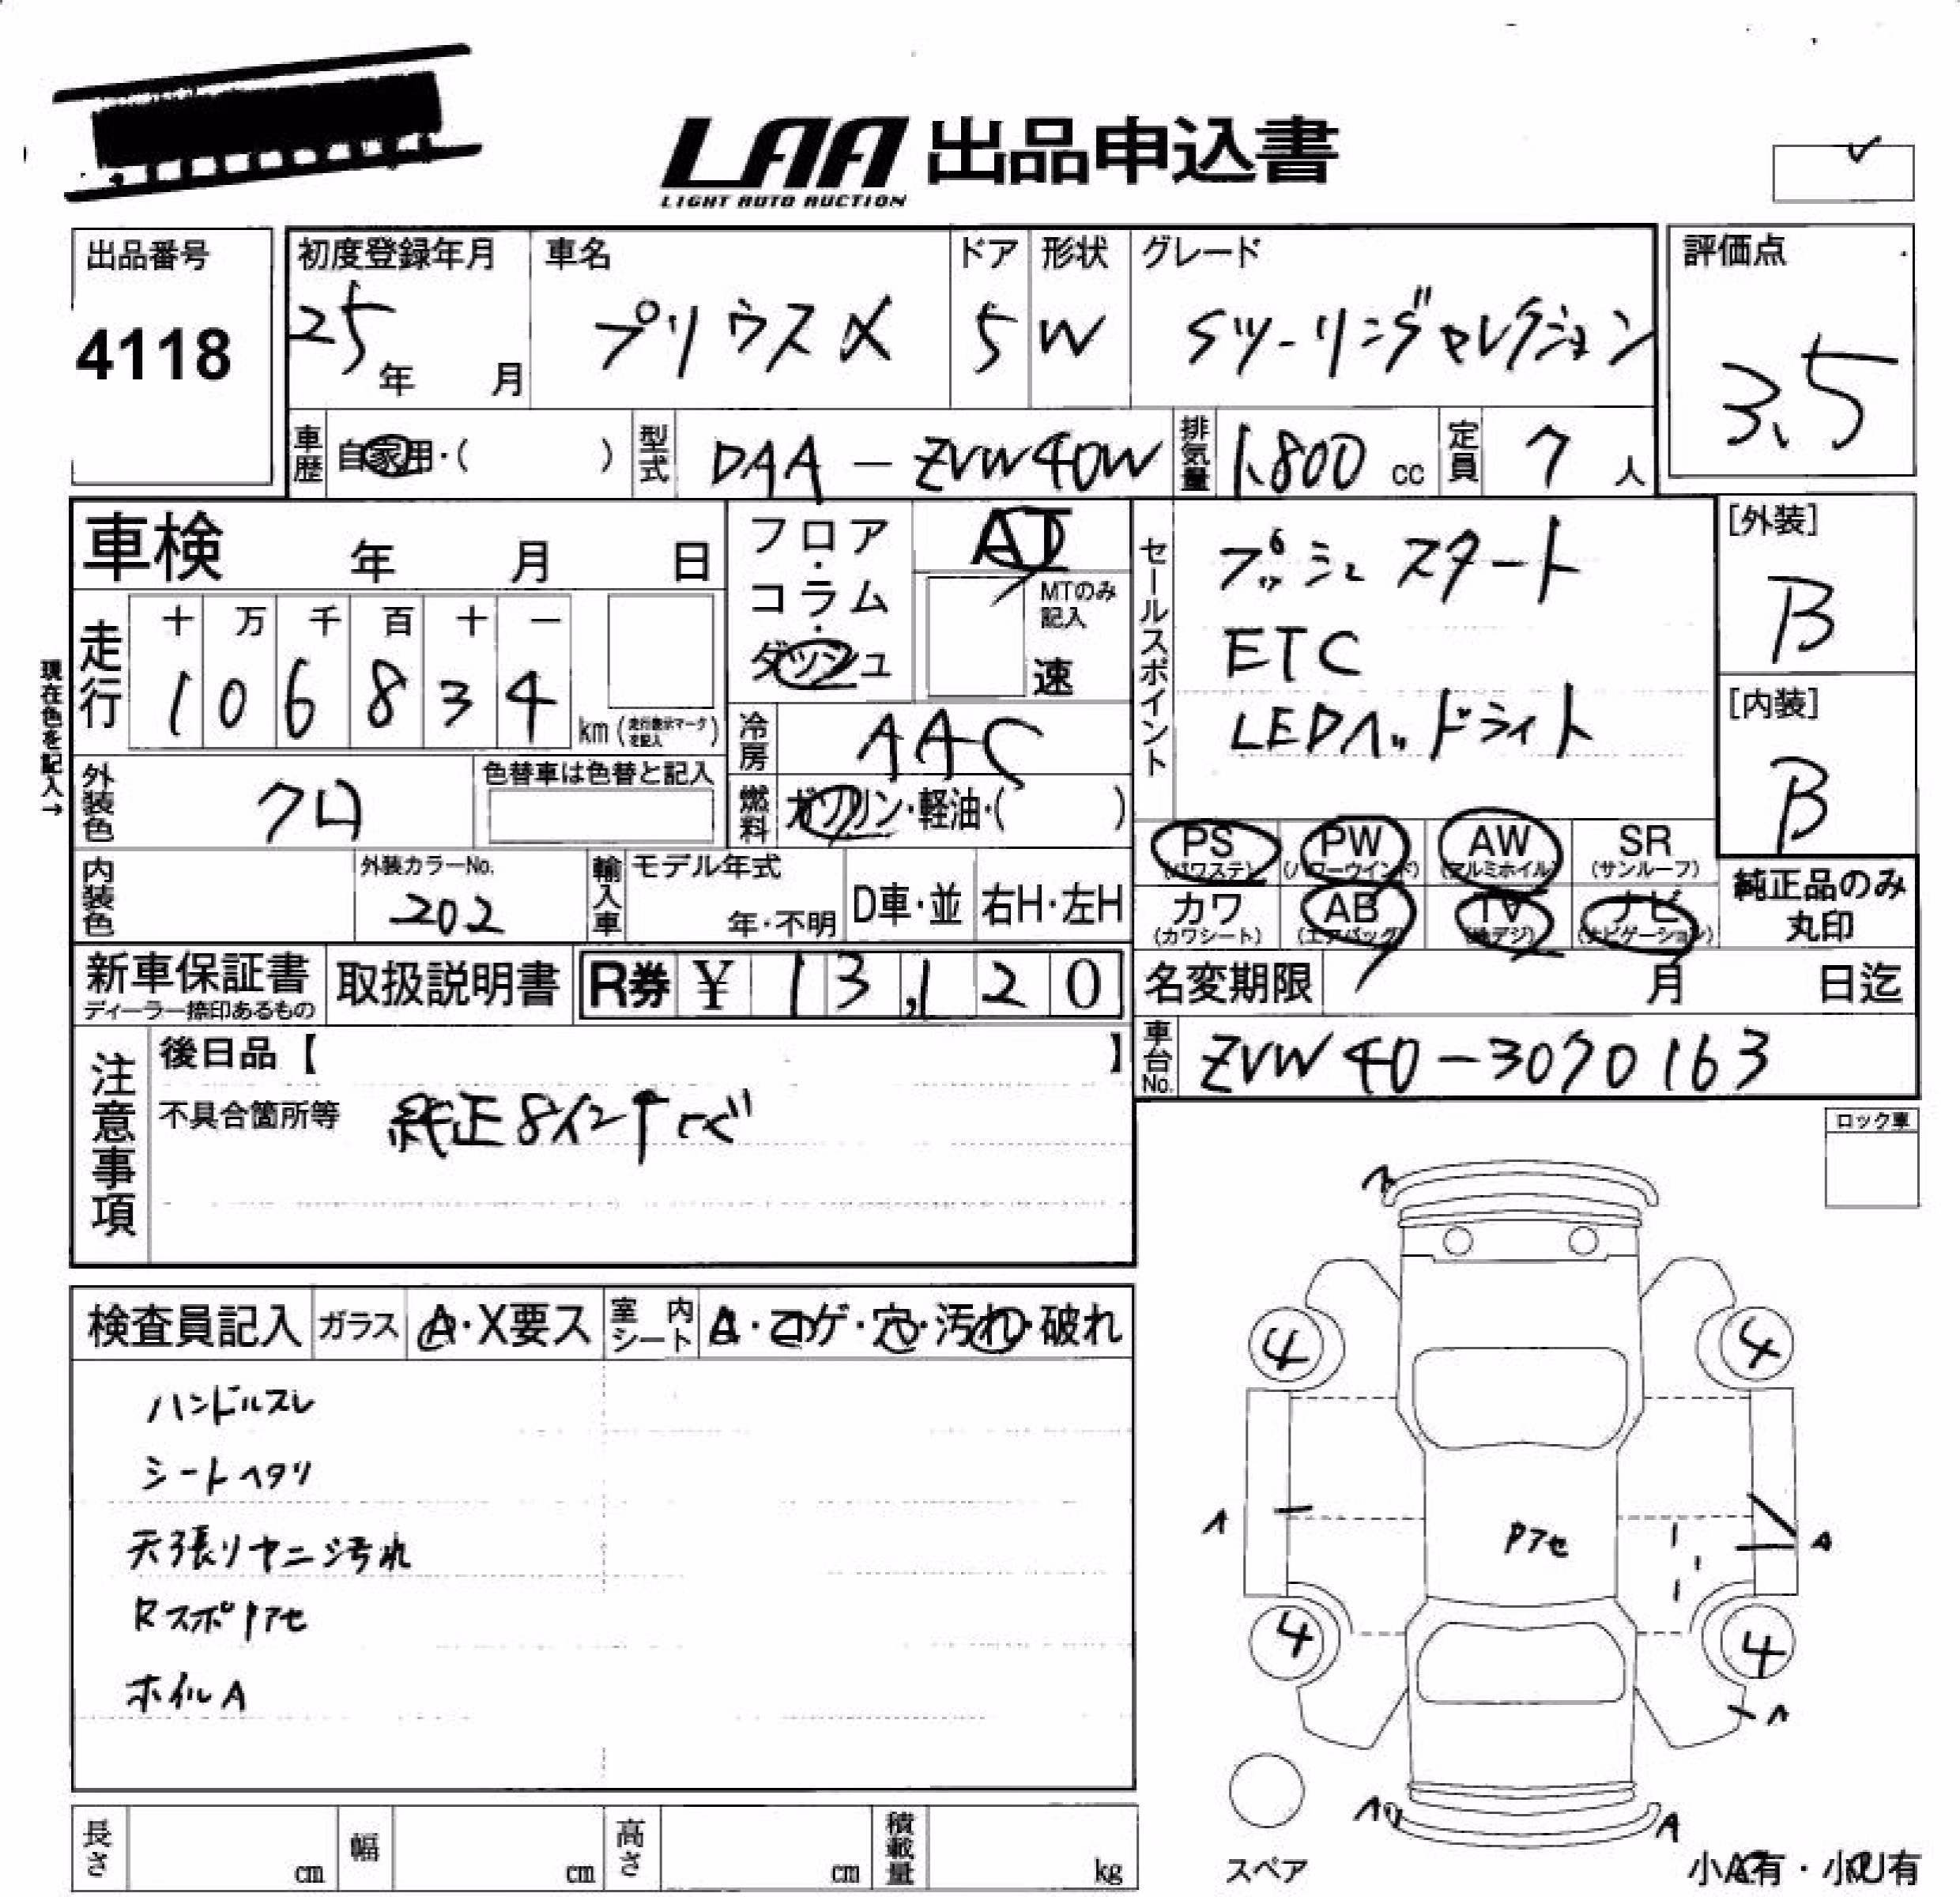 LAA 出品申込書
LIGHT AUTO AUCTION
出品番号
4118
初度登録年月
25年 月
車名
プリウスα
ドア
5
形状
W
グレード
Sツーリングセレクション
評価点
3.5
車歴
自家用・( )
型式
DAA-ZVW40W
排気量
1,800 cc
定員
7 人
車検 年 月 日
フロア・コラム・ダッシュ
AT
MTのみ記入
速
セールスポイント
プッシュスタート
ETC
LEDヘッドライト
[外装]
B
[内装]
B
現在色を記入→
走行
十 万 千 百 十 一
1 0 6 8 3 4
km (走行表示マークを記入)
冷房
AAC
燃料
ガソリン・軽油・( )
外装色
クロ
色替車は色替と記入
内装色
外装カラーNo.
202
輸入車
モデル年式
年・不明
D車・並
右H・左H
PS
(パワステ)
PW
(パワーウインド)
AW
(アルミホイル)
SR
(サンルーフ)
カワ
(カワシート)
AB
(エアバッグ)
TV
(地デジ)
ナビ
(ナビゲーション)
純正品のみ
丸印
新車保証書
ディーラー捺印あるもの
取扱説明書
R券 ¥ 13,120
名変期限 月 日迄
車台No.
ZVW40-3070163
注意事項
後日品【 】
不具合箇所等
純正8インチナビ
ロック車
検査員記入
ガラス
A・X要ス
室内シート
・コゲ・穴・汚れ・破れ
ハンドルスレ
シートヘタリ
天張リヤニ汚れ
Rスポイアセ
ホイルA
A
4
4
A
Pアセ
A
4
4
A
A
スペア
小A有・小U有
長さ cm
幅 cm
高さ cm
積載量 kg